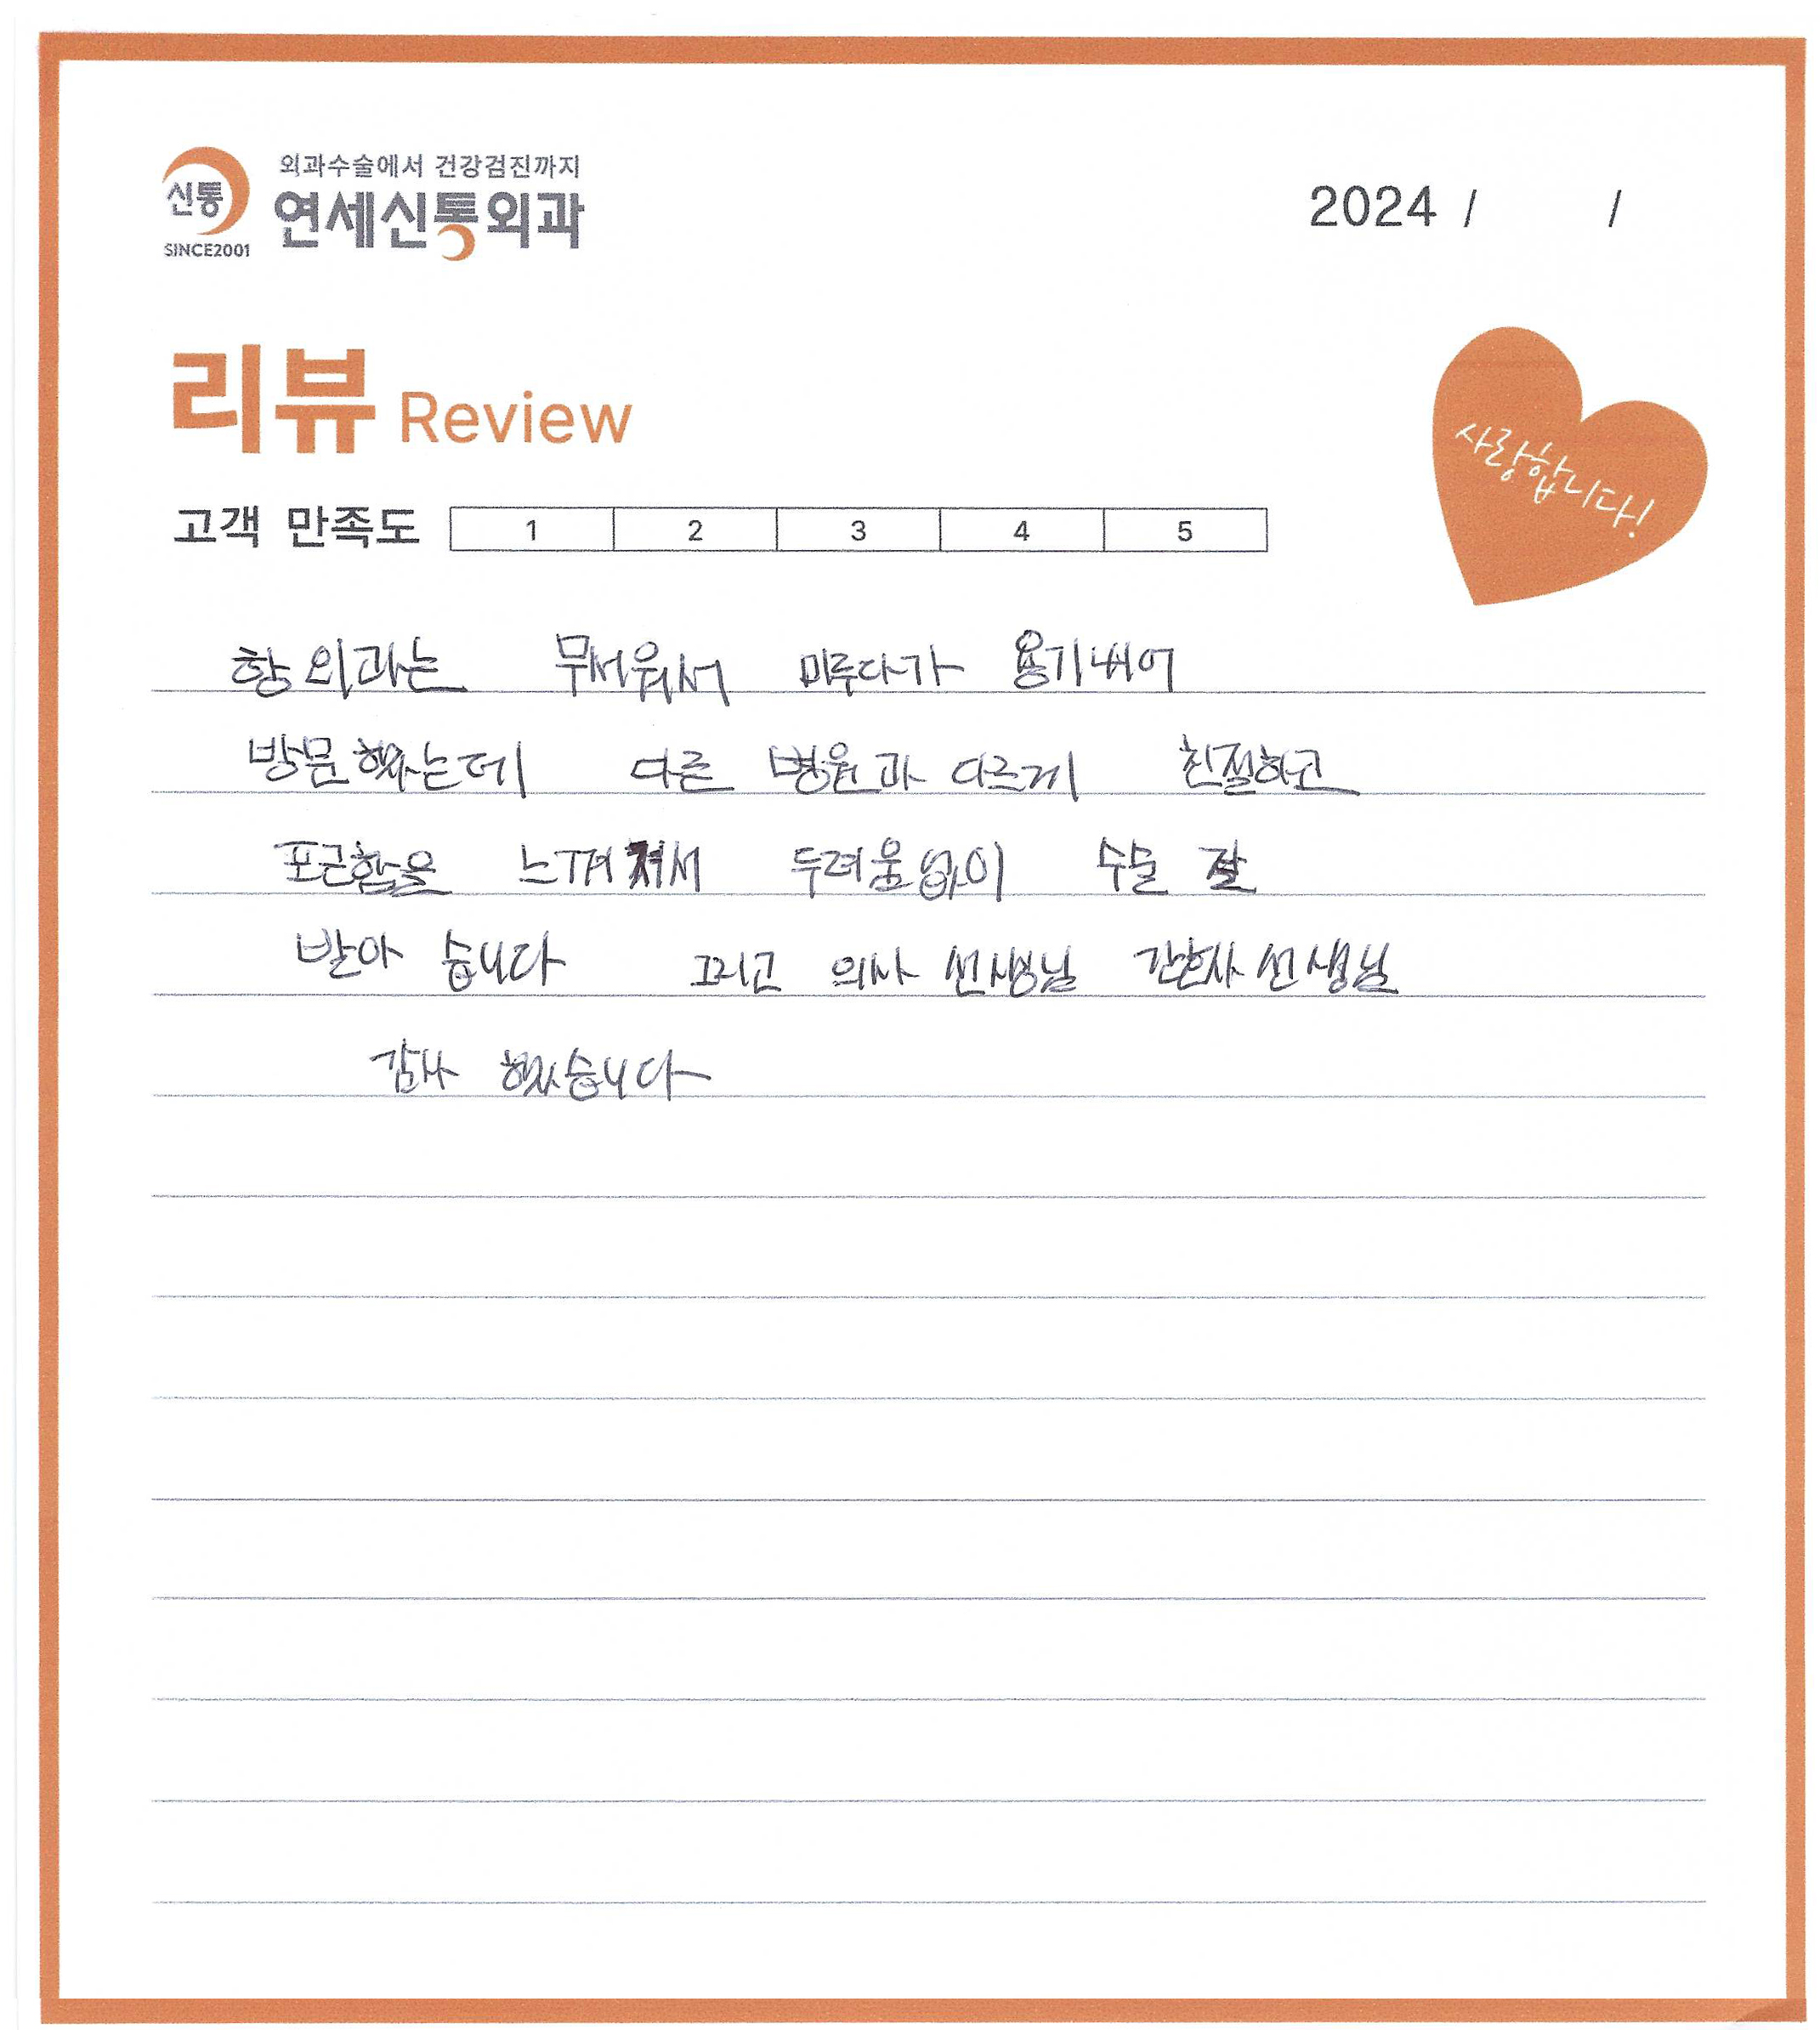 외과수술에서 건강검진까지
신통 연세신통외과
SINCE2001
2024 / /
리뷰 Review
사랑합니다!
고객 만족도 1 2 3 4 5
항외과는 무서워서 미루다가 용기내어
방문했는데 다른 병원과 다르게 친절하고
포근함을 느껴져서 두려움없이 수술 잘
받아 습니다 그리고 의사 선생님 간호사 선생님
감사 했습니다